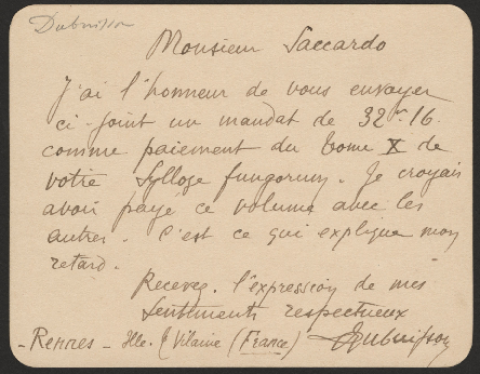 Dubuisson
Monsieur Saccardo
J'ai l'honneur de vous envoyer
ci-joint un mandat de 32 16
comme paiement du tome X de
votre Sylloge fungorum. Je croyais
avoir payé ce volume avec les
autres. C'est ce qui explique mon
retard.
Recevez. l'expression de mes
sentiments respectueux
- Rennes - Ille. & Vilaine (France) Dubuisson